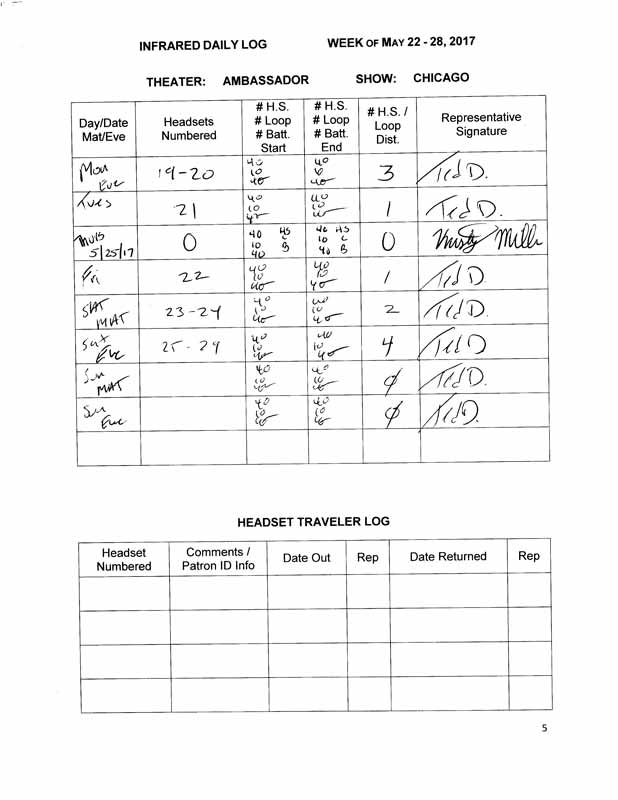 INFRARED DAILY LOG WEEK OF MAY 22 - 28, 2017
THEATER: AMBASSADOR SHOW: CHICAGO
Day/Date Mat/Eve Headsets Numbered # H.S. # Loop # Batt. Start # H.S. # Loop # Batt. End # H.S. / Loop Dist. Representative Signature
Mon Eve 19-20 40 10 40 40 10 40 3 Ted D.
Tues 21 40 10 40 40 10 40 1 Ted D.
5/25/17 0 40 HS 10 C 40 B 40 HS 10 C 40 B 0 Miller
Fri 22 40 10 40 40 10 40 1 Ted D.
SAT MAT 23-24 40 10 40 40 10 40 2 Ted D.
Sat Eve 25-29 40 10 40 40 10 40 4 Ted D
Sun MAT 40 10 40 40 10 40 0 Ted D.
Sun Eve 40 10 40 40 10 40 0 Ted D.
HEADSET TRAVELER LOG
Headset Numbered Comments / Patron ID Info Date Out Rep Date Returned Rep
5